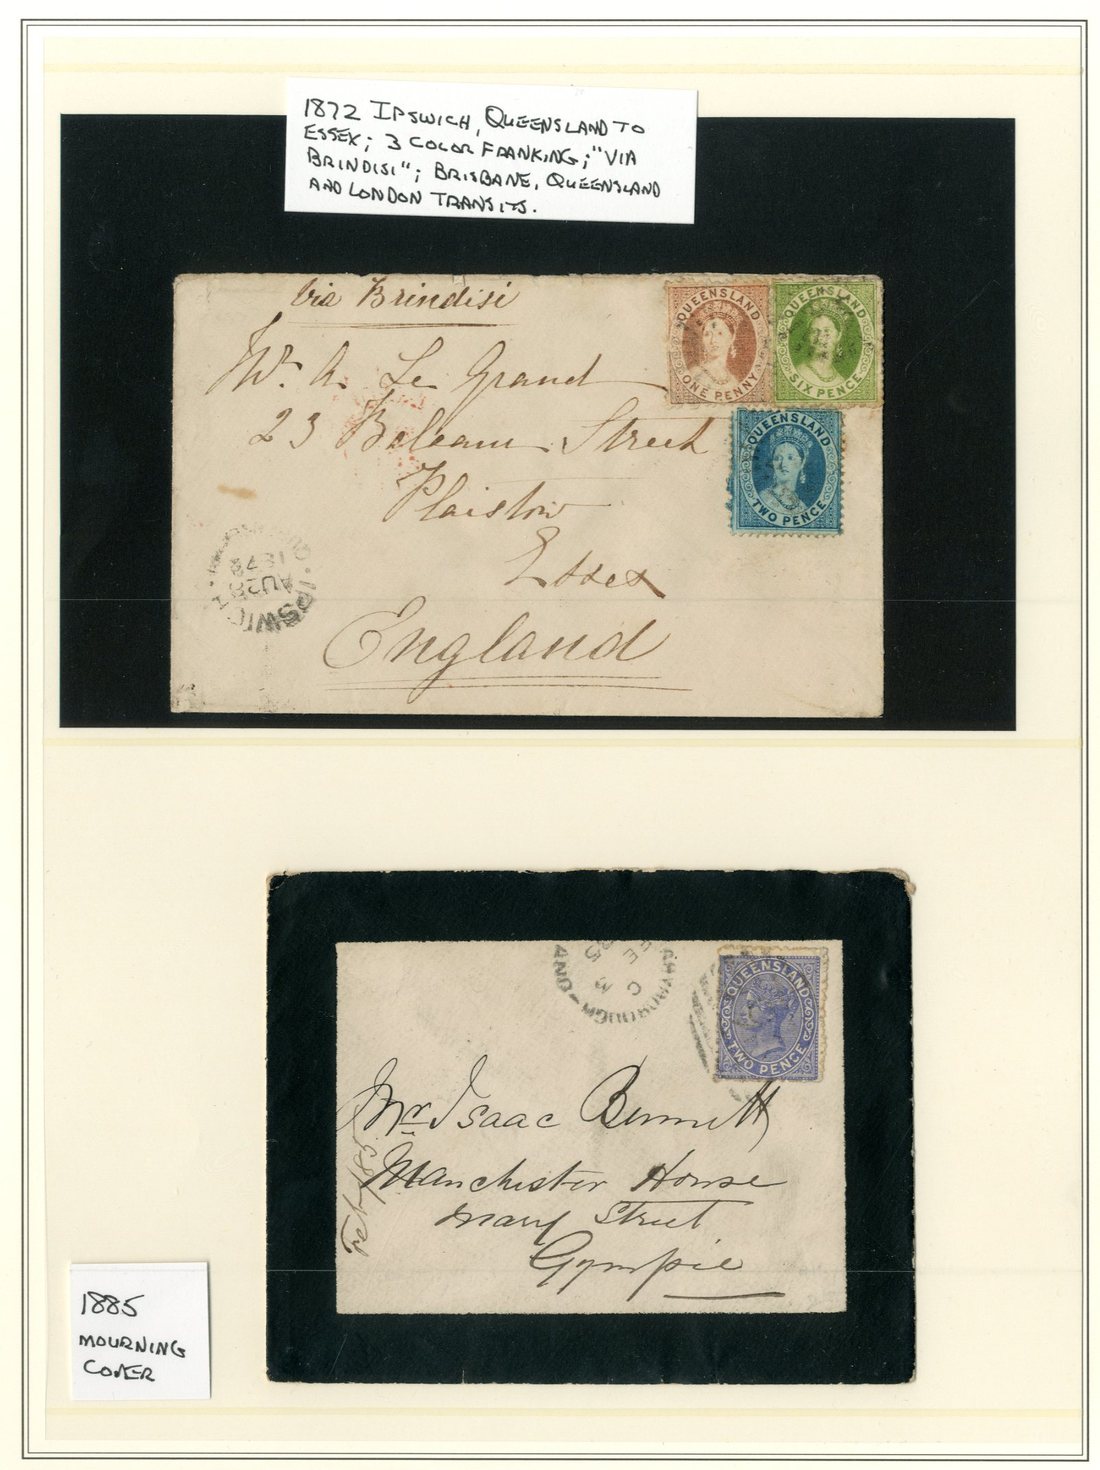 1872 IPSWICH, QUEENSLAND TO
ESSEX; 3 COLOR FRANKING; "VIA
BRINDISI"; BRISBANE, QUEENSLAND
AND LONDON TRANSITS.
Via Brindisi
Mr. A. Le Grand
23 Street
Plaistow
Essex
England
QUEENSLAND
ONE PENNY
QUEENSLAND
SIX PENCE
QUEENSLAND
TWO PENCE
IPSWICH
AU 28
187
QUEENSLAND
TWO PENCE
C
FE
85
Mr. Isaac Bennett
Manchester House
Mary Street
Gympie
Feb/85
1885
MOURNING
COVER